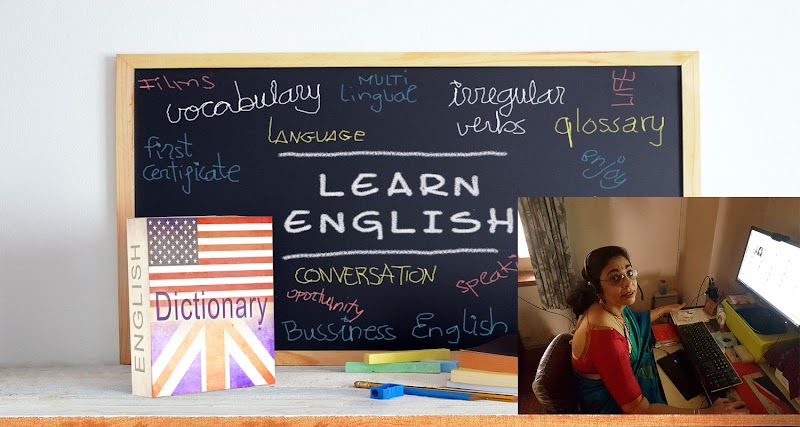 Films
vocabulary
MULTI
lingual
irregular
verbs
LANGUAGE
glossary
first
certificate
enjoy
LEARN
ENGLISH
CONVERSATION
speaki
oportunity
Bussiness English
ENGLISH
Dictionary